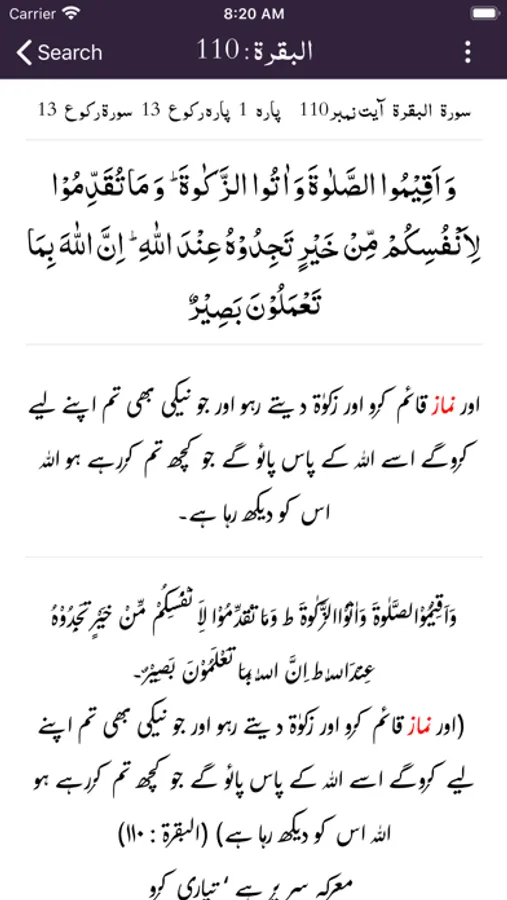 Carrier 8:20 AM
Search البقرة: 110
سورة البقرة آیت نمبر110 پارہ 1 پارہ رکوع 13 سورۃ رکوع 13
وَ اَقِیْمُوا الصَّلٰوةَ وَ اٰتُوا الزَّكٰوةَؕ وَ مَا تُقَدِّمُوْا
لِاَنْفُسِكُمْ مِّنْ خَیْرٍ تَجِدُوْهُ عِنْدَ اللّٰهِؕ اِنَّ اللّٰهَ بِمَا
تَعْمَلُوْنَ بَصِیْرٌ
اور نماز قائم کرو اور زکوٰۃ دیتے رہو اور جو نیکی بھی تم اپنے لیے
کروگے اسے اللہ کے پاس پائو گے جو کچھ تم کررہے ہو اللہ
اس کو دیکھ رہا ہے۔
وَاَقِیْمُوْا الصَّلٰوۃَ وَاٰتُوْا الزَّکٰوۃَ ط وَمَا تُقَدِّمُوْا لِاَ نْفُسِکُمْ مِّنْ خَیْرٍ تَجِدُوْہُ
عِنْدَاللہِ ط اِنَّ اللہَ بِمَا تَعْلَمُوْنَ بَصِیْرٌ۔
(اور نماز قائم کرو اور زکوٰۃ دیتے رہو اور جو نیکی بھی تم اپنے
لیے کروگے اسے اللہ کے پاس پائو گے جو کچھ تم کررہے ہو
اللہ اس کو دیکھ رہا ہے) (البقرۃ : ١١٠)
معرکہ سر پر ہے ‘ تیاری کرو